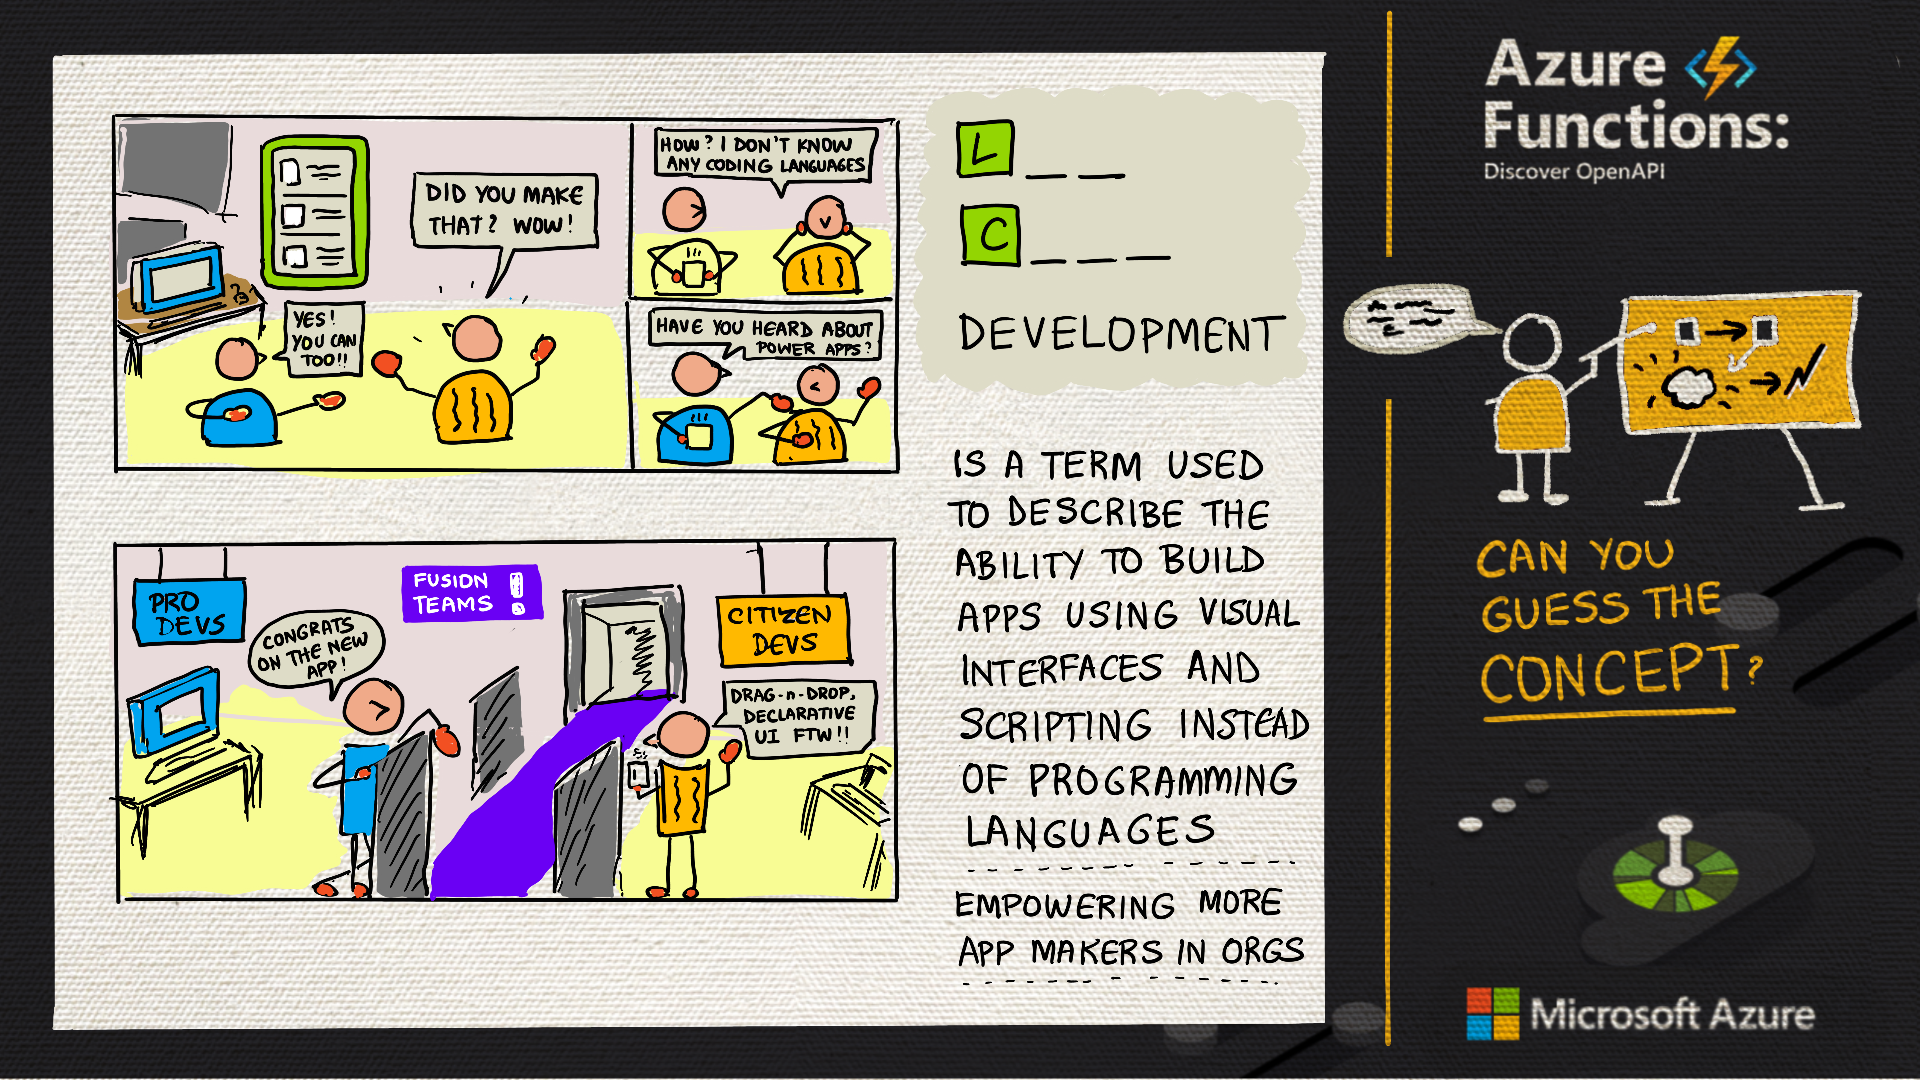 DID YOU MAKE
THAT? WOW!
YES!
YOU CAN
TOO!!
HOW? I DON'T KNOW
ANY CODING LANGUAGES
HAVE YOU HEARD ABOUT
POWER APPS?
PRO
DEVS
CONGRATS
ON THE NEW
APP!
FUSION
TEAMS !
CITIZEN
DEVS
DRAG-n-DROP,
DECLARATIVE
UI FTW!!
L _ _
C _ _ _
DEVELOPMENT
IS A TERM USED
TO DESCRIBE THE
ABILITY TO BUILD
APPS USING VISUAL
INTERFACES AND
SCRIPTING INSTEAD
OF PROGRAMMING
LANGUAGES
EMPOWERING MORE
APP MAKERS IN ORGS
Azure
Functions:
Discover OpenAPI
CAN YOU
GUESS THE
CONCEPT?
Microsoft Azure